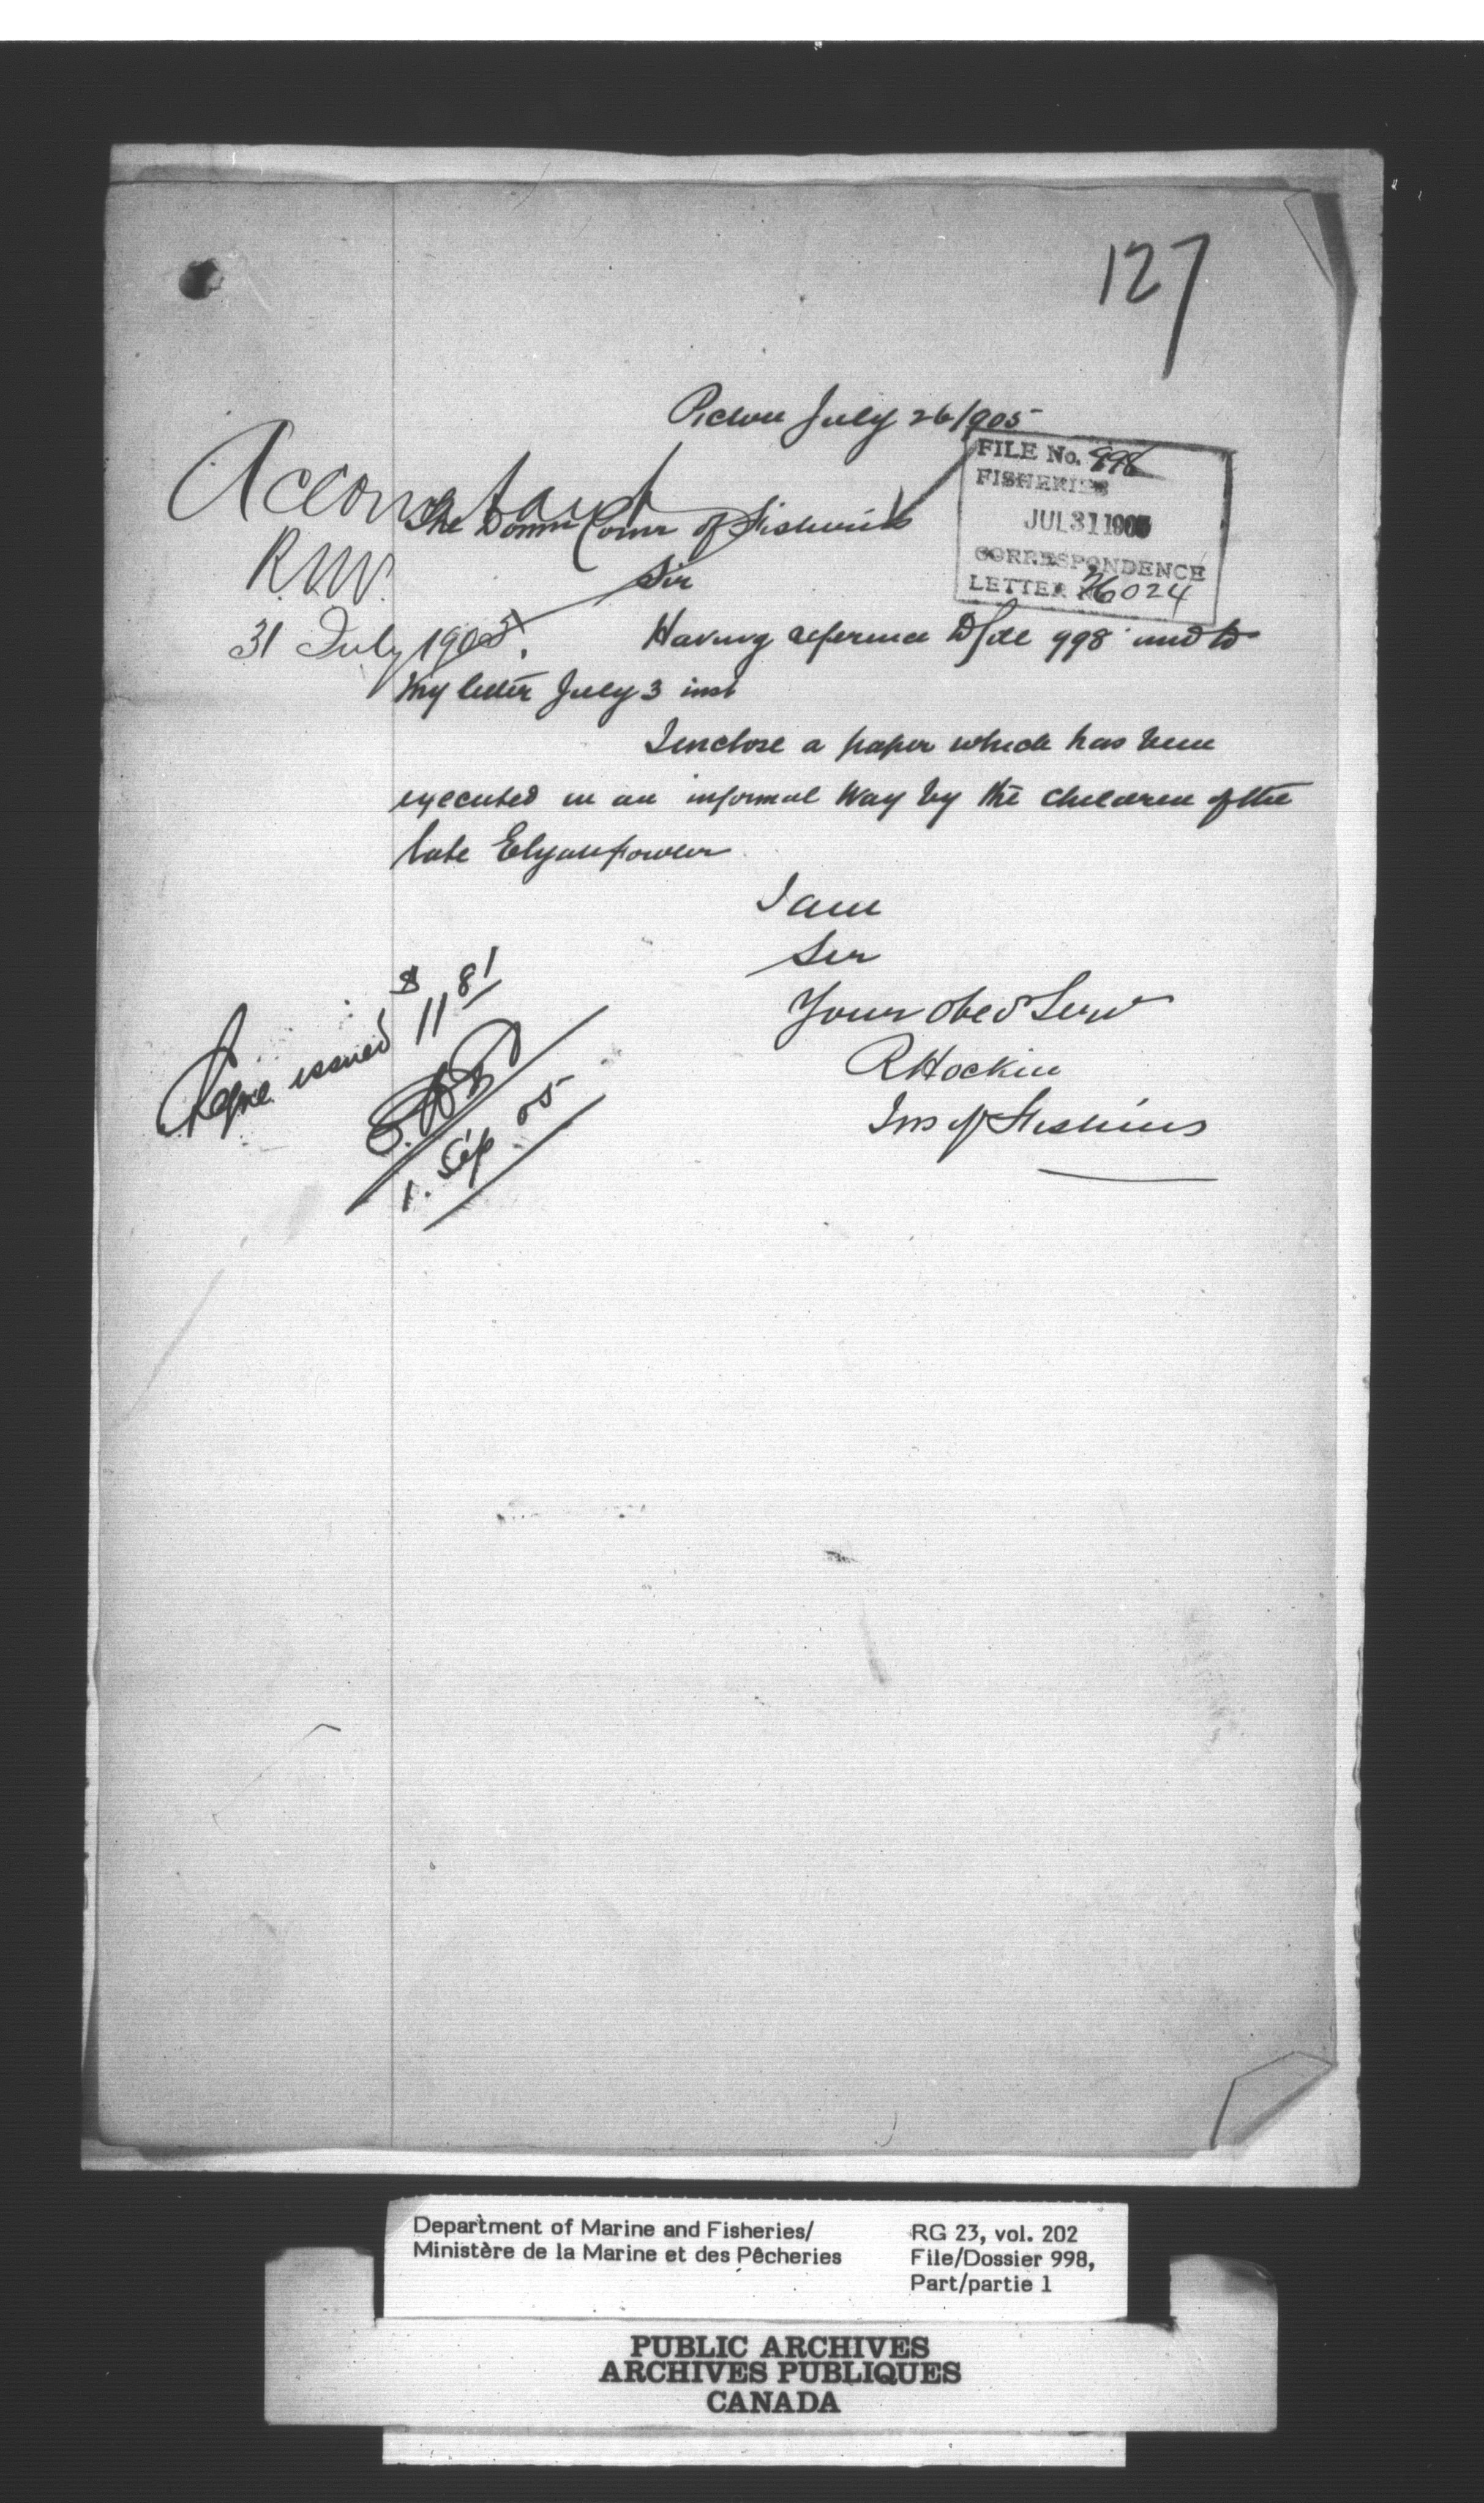 127
Pictou July 26/905
FILE No. 998
FISHERIES
JUL 31 1905
CORRESPONDENCE
LETTER 26024
Accountant
R.N.V.
31 July 1905.
The Domn Comr of Fisheries
Sir
Having reference to file 998 and to
my letter July 3 inst
I enclose a paper which has been
executed in an informal way by the children of the
late Elijah Fowler
I am
Sir
Your obed Serv
R Hockin
Ins of Fisheries
issued $11 81
1. Sep 05
Department of Marine and Fisheries/
Ministère de la Marine et des Pêcheries
RG 23, vol. 202
File/Dossier 998,
Part/partie 1
PUBLIC ARCHIVES
ARCHIVES PUBLIQUES
CANADA